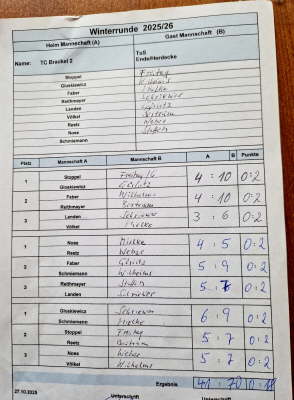 Winterrunde 2025/26
Heim Mannschaft (A) Gast Mannschaft (B)
Name: TC Brackel 2 TuS Ende/Herdecke
Stoppel Freitag
Gloskiewicz
Faber
Reithmayer Schriewer
Landen Görlitz
Völkel Bertram
Reetz Weber
Nose
Schniemann
Platz Mannschaft A Mannschaft B A B Punkte
1 Stoppel Freitag 4 : 10 0:2
Gloskiewicz Görlitz
2 Faber Wilhelms 4 : 10 0:2
Reithmayer Bertram
3 Landen Schriewer 3 : 6 0:2
Völkel Mielke
1 Nose Mielke 4 : 5 0:2
Reetz Weber
2 Faber Görlitz 5 : 9 0:2
Schniemann Wilhelms
3 Reithmayer 5 : 7 0:2
Landen Schriewer
1 Gloskiewicz Schriewer 6 : 9 0:2
Schniemann Mielke
2 Stoppel Freitag 5 : 7 0:2
Reetz Bertram
3 Nose Weber 5 : 7 0:2
Völkel Wilhelms
Ergebnis 41 : 70 0:18
27.10.2025
Unterschrift Unterschrift